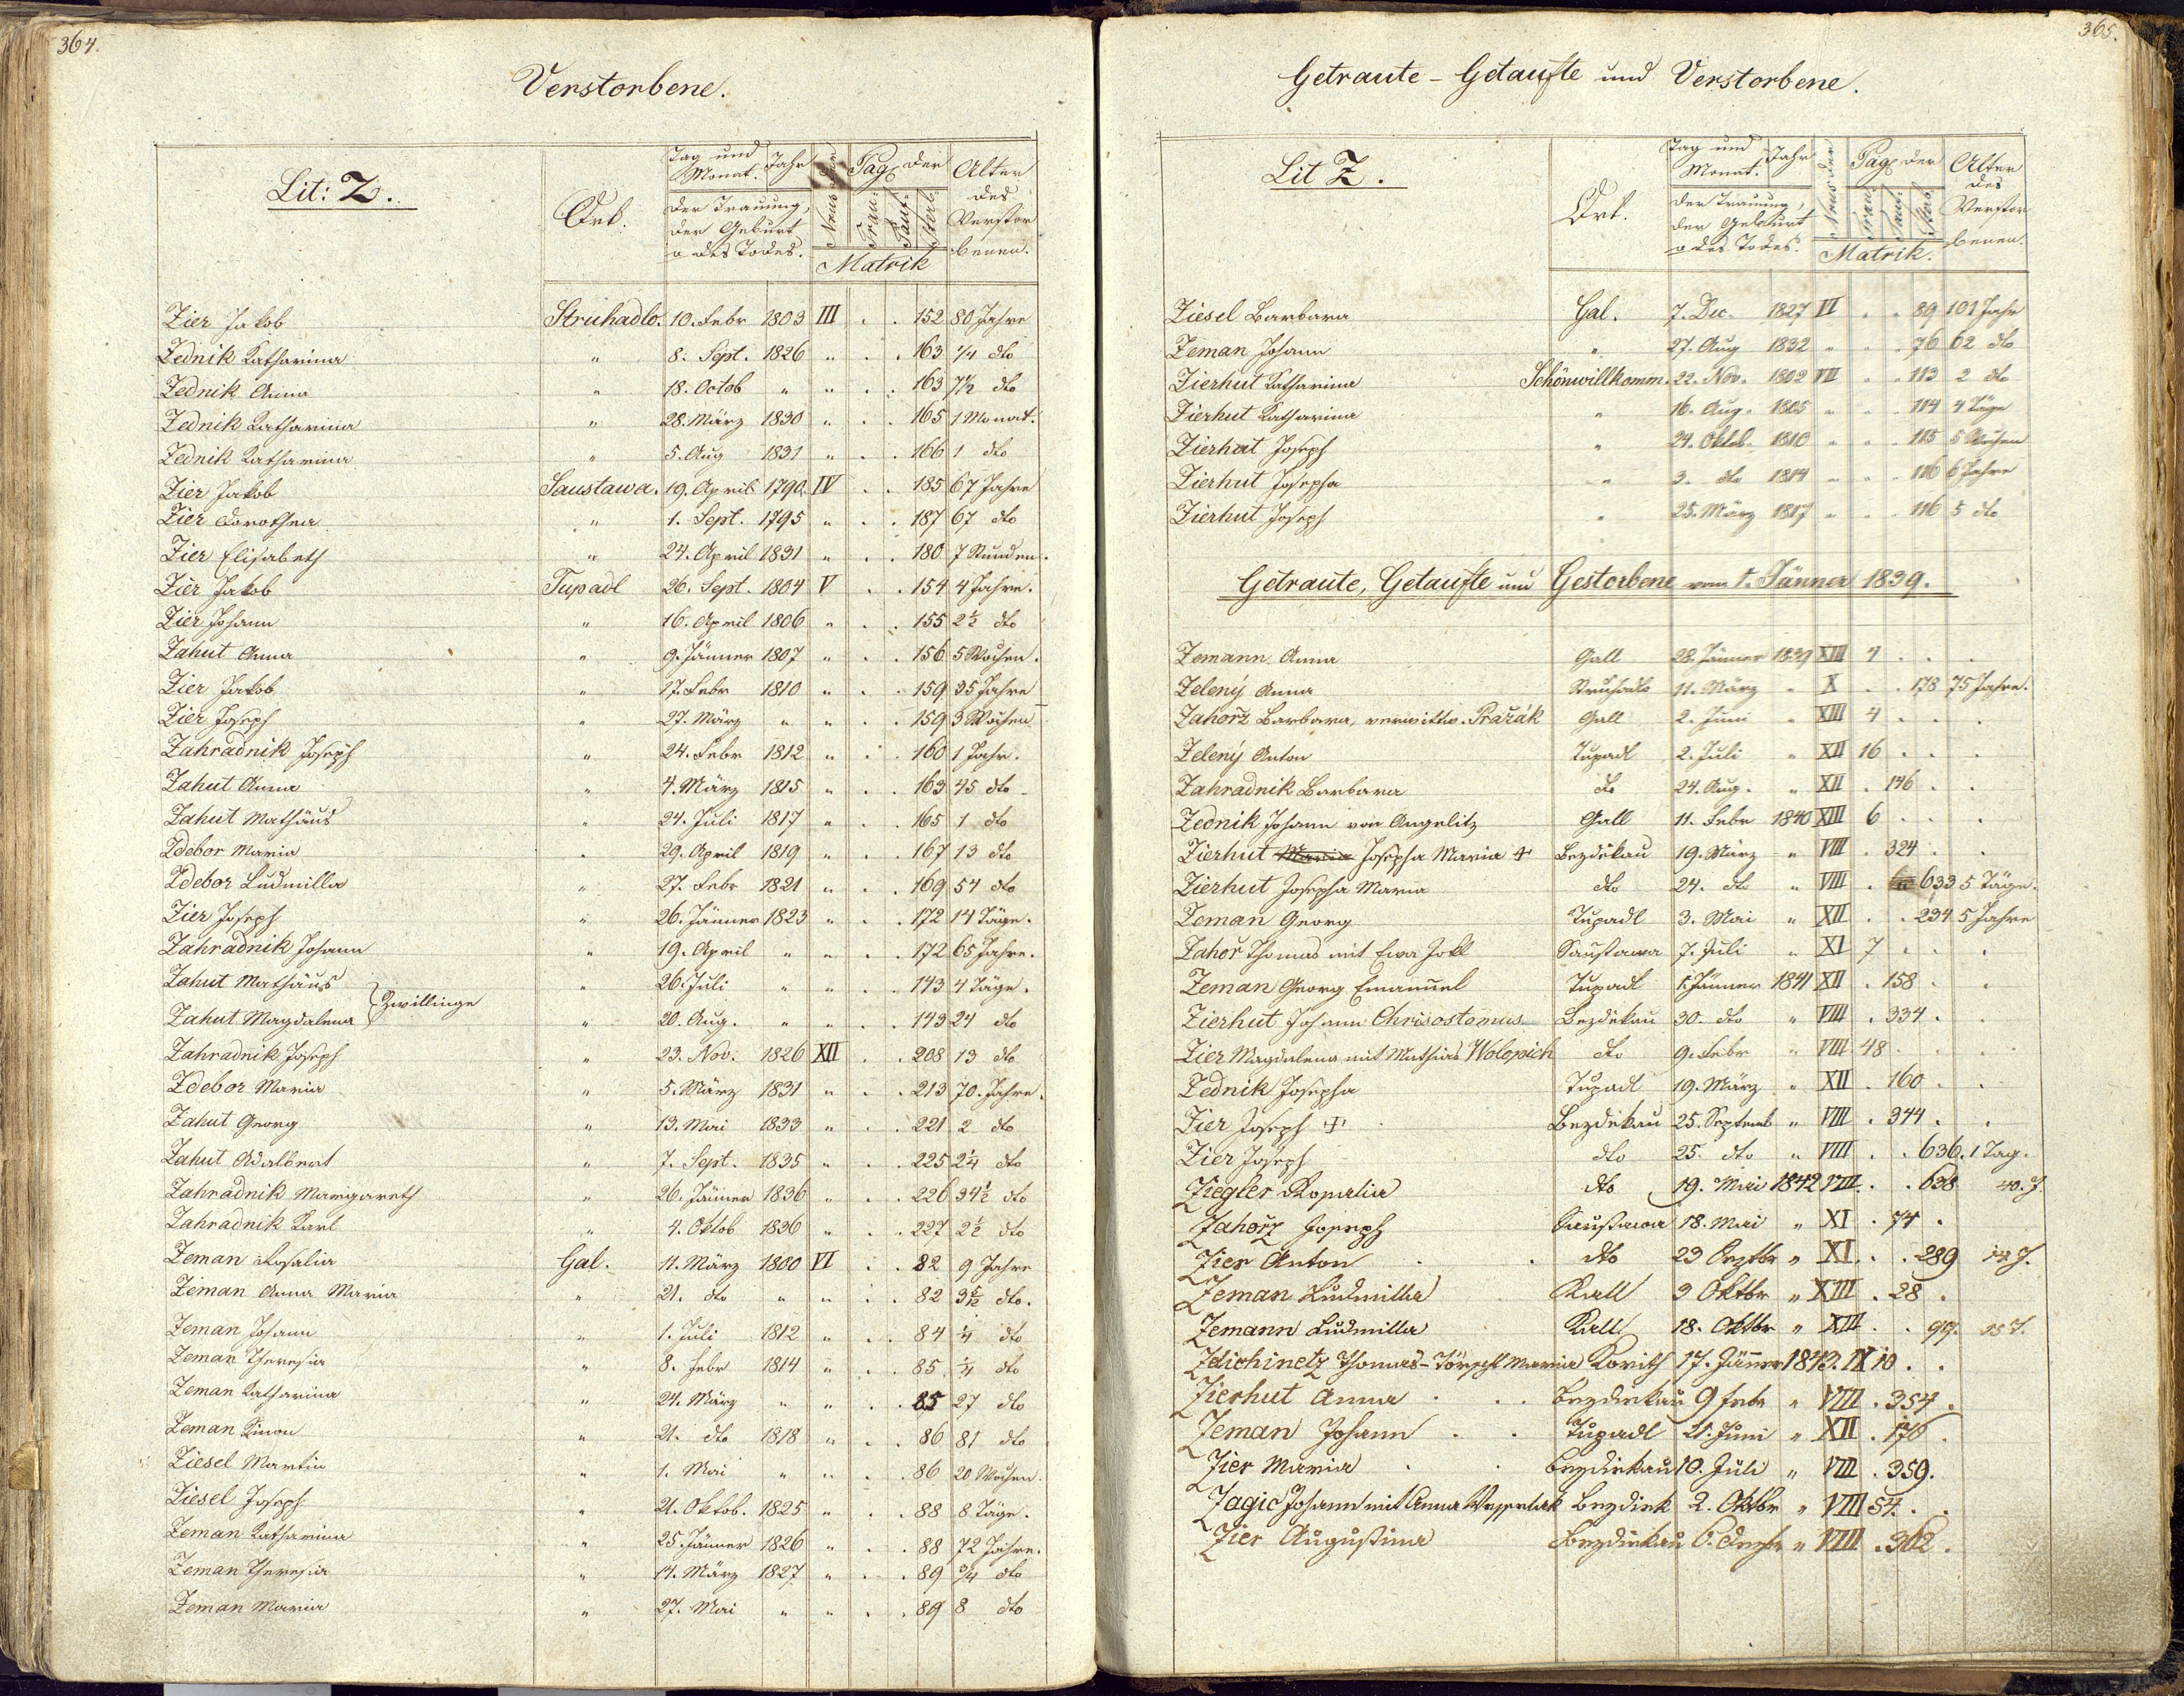 364.
Verstorbene.
Lit: Z.
Ort.
Tag und Monat. Jahr
der Trauung,
der Geburt
o des Todes.
Nrus der
Pag der
Trau: Tauf: Sterb:
Matrik
Alter
des
Verstor
benen.
Zier Jakob Struhadlo. 10. Febr 1803 III . . 152 80 Jahre
Zednik Katharina " 8. Sept. 1826 " . . 163 1/4 dto
Zednik Anna " 18. Octob " " . . 163 7½ dto
Zednik Katharina " 28. März 1830 " . . 165 1 Monat.
Zednik Katharina " 5. Aug 1831 " . . 166 1 dto
Zier Jakob Saustawa. 19. April 1790 IV . . 185 67 Jahre
Zier Dorothea " 1. Sept. 1795 " . . 187 67 dto
Zier Elisabeth " 24. April 1831 " . . 180 7 Stunden.
Zier Jakob Tupadl 26. Sept. 1804 V . . 154 4 Jahre.
Zier Johann " 16. April 1806 " . . 155 2½ dto
Zahut Anna " 9. Jänner 1807 " . . 156 5 Wochen.
Zier Jakob " 17. Febr 1810 " . . 159 35 Jahre
Zier Joseph " 27. März " " . . 159 3 Wochen
Zahradnik Joseph " 24. Febr 1812 " . . 160 1 Jahr.
Zahut Anna " 4. März 1815 " . . 163 45 dto
Zahut Mathäus " 24. Juli 1817 " . . 165 1 dto
Zdebor Maria " 29. April 1819 " . . 167 13 dto
Zdebor Ludmilla " 27. Febr 1821 " . . 169 54 dto
Zier Joseph " 26. Jänner 1823 " . . 172 14 Täge.
Zahradnik Johann " 19. April " " . . 172 65 Jahre.
Zahut Mathäus " 26. Juli " " . . 143 4 Täge.
Zwillinge
Zahut Magdalena " 20. Aug. " " . . 143 24 dto
Zahradnik Joseph " 23. Nov. 1826 XII . . 208 13 dto
Zdebor Maria " 5. März 1831 " . . 213 70. Jahre.
Zahut Georg " 13. Mai 1833 " . . 221 2 dto
Zahut Adalbert " 7. Sept. 1835 " . . 225 2¼ dto
Zahradnik Margareth " 26. Jänner 1836 " . . 226 34½ dto
Zahradnik Karl " 4. Oktob 1836 " . . 227 2½ dto
Zeman Rosalia Gal. 11. März 1800 VI . . 82 9 Jahre
Zeman Anna Maria " 21. dto " " . . 82 3½ dto.
Zeman Johann " 1. Juli 1812 " . . 84 ¼ dto
Zeman Theresia " 8. Febr 1814 " . . 85 ¼ dto
Zeman Katharina " 24. März " " . . 85 27 dto
Zeman Simon " 21. dto 1818 " . . 86 81 dto
Ziesel Martin " 1. Mai " " . . 86 20 Wochen.
Ziesel Joseph " 21. Oktob. 1825 " . . 88 8 Täge.
Zeman Katharina " 25. Jänner 1826 " . . 88 72 Jahre.
Zeman Theresia " 14. März 1827 " . . 89 ¾ dto
Zeman Maria " 27. Mai " " . . 89 8 dto
365.
Getraute - Getaufte und Verstorbene.
Lit Z.
Ort.
Tag und Monat. Jahr
der Trauung,
der Geburt
o des Todes.
Nrus der
Pag der
Trau: Tauf: Sterb:
Matrik.
Alter
des
Verstor
benen.
Ziesel Barbara Gal. 7. Dec. 1827 VI . . 89 101 Jahr
Zeman Johann " 27. Aug 1832 " . . 76 62 dto
Zierhut Katharina Schönwillkomm. 22. Nov. 1802 VII . . 113 2 dto
Zierhut Katharina " 16. Aug. 1805 " . . 114 4 Täge
Zierhut Joseph " 24. Oktob. 1810 " . . 115 5 Wochen
Zierhut Josepha " 3. dto 1814 " . . 116 6 Jahre
Zierhut Joseph " 25. März 1817 " . . 116 5 dto
Getraute, Getaufte und Gestorbene vom 1. Jänner 1839.
Zemann Anna Gall 28. Jänner 1839 XIII 4 . .
Zelený Anna Struhadlo 11. März " X . . 178 75 Jahre.
Zahořz Barbara, verwittw. Pražák Gall 2. Juni " XIII 4 . .
Zelený Anton Tupadl 2. Juli " XII 16 . .
Zahradnik Barbara dto 24. Aug. " XII . 146 .
Zednik Johann von Angelitz Gall 11. Febr 1840 XIII 6 . .
Zierhut Maria Josepha Maria + Bezděkau 19. März " VIII . 324 .
Zierhut Josepha Maria dto 24. dto " VIII . 633 5 Täge.
Zeman Georg Tupadl 3. Mai " XII . . 234 5 Jahre
Zahoř Thomas mit Ewa Jokl Saustawa 7. Juli " XI 7 . .
Zeman Georg Emanuel Tupadl 1. Jänner 1841 XII . 158 .
Zierhut Johann Chrisostomus Bezděkau 30. dto " VIII . 334 .
Zier Magdalena mit Mathias Wolopich dto 9. Febr " VIII 48 . .
Zednik Josepha Tupadl 19. März " XII . 160 .
Zier Joseph + Bezděkau 25. Septemb " VIII . 344 .
Zier Joseph dto 25. dto " VIII . . 636. 1 Tag.
Ziegler Rosalia dto 19. Mai 1842 VIII . . 638 40. J.
Zahořz Joseph Saustawa 18. Mai " XI . 74 .
Zier Anton dto 23 " XI . . 289
Zeman Ludmilla Kall 9 Oktbr " XIII . 28 .
Zemann Ludmilla Kall 18. Oktbr " XIII . . 99.
Zdichinetz Thomas - Maria Korith 17. Jänner 1843. IX 10 . .
Zierhut Anna Bezdiekau 9 Febr " VIII . 354 .
Zeman Johann Tupadl 21. Juni " XII . 170 .
Zier Maria Bezdiekau 10. Juli " VIII . 359.
Zagič Johann mit Anna Bezdiek 2. Oktbr " VIII 54. .
Zier Augustina Bezdiekau 6. " VIII . 362 .